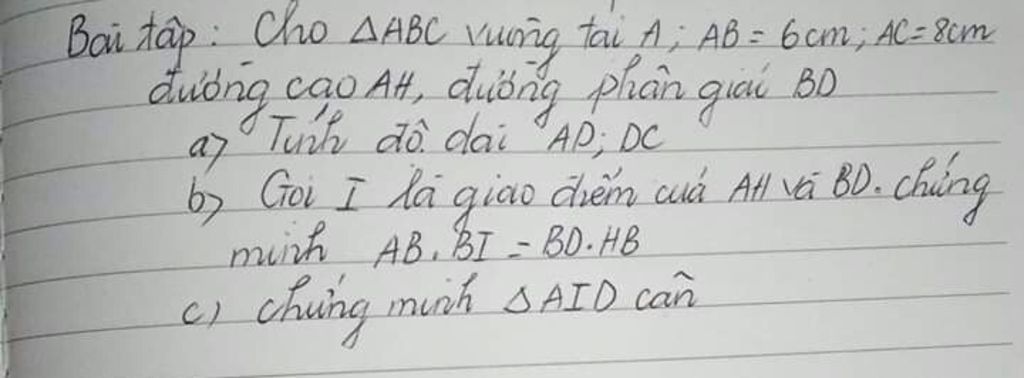 Bài tập: Cho ΔABC vuông tại A; AB = 6cm; AC = 8cm
đường cao AH, đường phân giác BD
a) Tính độ dài AD; DC
b) Gọi I là giao điểm của AH và BD. chứng
minh AB.BI = BD.HB
c) chứng minh ΔAID cân